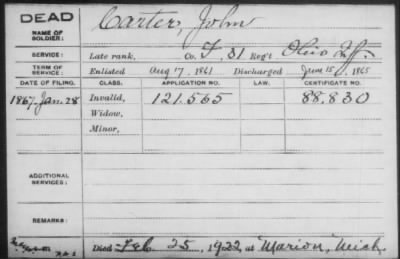 DEAD
NAME OF SOLDIER: Carter, John
SERVICE: Late rank, Co. F, 81 Reg't Ohio Inf.
TERM OF SERVICE: Enlisted Aug 17, 1861 Discharged June 15, 1865
DATE OF FILING. CLASS. APPLICATION NO. LAW. CERTIFICATE NO.
1867, Jan. 28 Invalid, 121.565 88.830
Widow,
Minor,
ADDITIONAL SERVICES:
REMARKS:
Died Feb. 25, 1922, at Marion, Mich.